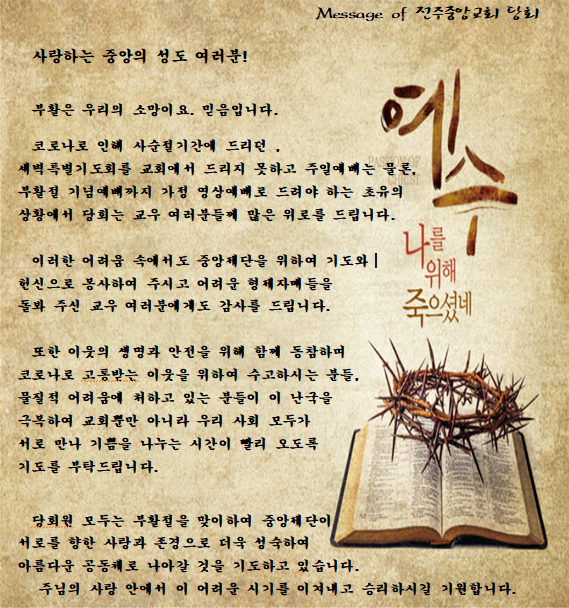 Message of 전주중앙교회 당회
사랑하는 중앙의 성도 여러분!
부활은 우리의 소망이요. 믿음입니다.
코로나로 인해 사순절기간에 드리던 .
새벽특별기도회를 교회에서 드리지 못하고 주일예배는 물론,
부활절 기념예배까지 가정 영상예배로 드려야 하는 초유의
상황에서 당회는 교우 여러분들께 많은 위로를 드립니다.
이러한 어려움 속에서도 중앙제단을 위하여 기도와
헌신으로 봉사하여 주시고 어려운 형제자매들을
돌봐 주신 교우 여러분에게도 감사를 드립니다.
또한 이웃의 생명과 안전을 위해 함께 동참하며
코로나로 고통받는 이웃을 위하여 수고하시는 분들,
물질적 어려움에 처하고 있는 분들이 이 난국을
극복하여 교회뿐만 아니라 우리 사회 모두가
서로 만나 기쁨을 나누는 시간이 빨리 오도록
기도를 부탁드립니다.
당회원 모두는 부활절을 맞이하여 중앙제단이
서로를 향한 사랑과 존경으로 더욱 성숙하여
아름다운 공동체로 나아갈 것을 기도하고 있습니다.
주님의 사랑 안에서 이 어려운 시기를 이겨내고 승리하시길 기원합니다.
예수
나를
위해
죽으셨네